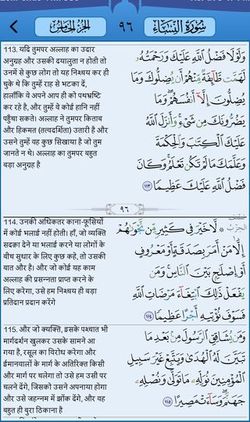 سُورَةُ النِّسَاءِ
٩٦
الجزء الخامس
113. यदि तुमपर अल्लाह का उदार
अनुग्रह और उसकी दयालुता न होती तो
उनमें से कुछ लोग तो यह निश्चय कर ही
चुके थे कि तुम्हें राह से भटका दें,
हालाँकि वे अपने आप ही को पथभ्रष्टि
कर रहे है, और तुम्हें वे कोई हानि नहीं
पहुँचा सकते। अल्लाह ने तुमपर किताब
और हिकमत (तत्वदर्शिता) उतारी है और
उसने तुम्हें वह कुछ सिखाया है जो तुम
जानते न थे। अल्लाह का तुमपर बहुत
बड़ा अनुग्रह है
وَلَوْلَا فَضْلُ اللَّهِ عَلَيْكَ وَرَحْمَتُهُ
لَهَمَّت طَّائِفَةٌ مِّنْهُمْ أَن يُضِلُّوكَ وَمَا
يُضِلُّونَ إِلَّا أَنفُسَهُمْ وَمَا
يَضُرُّونَكَ مِن شَيْءٍ وَأَنزَلَ اللَّهُ
عَلَيْكَ الْكِتَابَ وَالْحِكْمَةَ
وَعَلَّمَكَ مَا لَمْ تَكُن تَعْلَمُ وَكَانَ
فَضْلُ اللَّهِ عَلَيْكَ عَظِيمًا ١١٣
٩٦
114. उनकी अधिकतर काना-फूसियों
में कोई भलाई नहीं होती। हाँ, जो व्यक्ति
सदक़ा देने या भलाई करने या लोगों के
बीच सुधार के लिए कुछ कहे, तो उसकी
बात और है। और जो कोई यह काम
अल्लाह की प्रसन्नता प्राप्त करने के
लिए करेगा, उसे हम निश्चय ही बड़ा
प्रतिदान प्रदान करेंगे
لَّا خَيْرَ فِي كَثِيرٍ مِّن نَّجْوَاهُمْ
إِلَّا مَنْ أَمَرَ بِصَدَقَةٍ أَوْ مَعْرُوفٍ
أَوْ إِصْلَاحٍ بَيْنَ النَّاسِ وَمَن
يَفْعَلْ ذَلِكَ ابْتِغَاءَ مَرْضَاتِ اللَّهِ
فَسَوْفَ نُؤْتِيهِ أَجْرًا عَظِيمًا ١١٤
115. और जो व्यक्ति, इसके पश्चात भी
मार्गदर्शन खुलकर उसके सामने आ
गया है, रसूल का विरोध करेगा और
ईमानवालों के मार्ग के अतिरिक्त किसी
और मार्ग पर चलेगा तो उसे हम उसी पर
चलने देंगे, जिसको उसने अपनाया होगा
और उसे जहन्नम में झोंक देंगे, और वह
बहुत ही बुरा ठिकाना है
وَمَن يُشَاقِقِ الرَّسُولَ مِن بَعْدِ مَا
تَبَيَّنَ لَهُ الْهُدَى وَيَتَّبِعْ غَيْرَ سَبِيلِ
الْمُؤْمِنِينَ نُوَلِّهِ مَا تَوَلَّى وَنُصْلِهِ
جَهَنَّمَ وَسَاءَتْ مَصِيرًا ١١٥